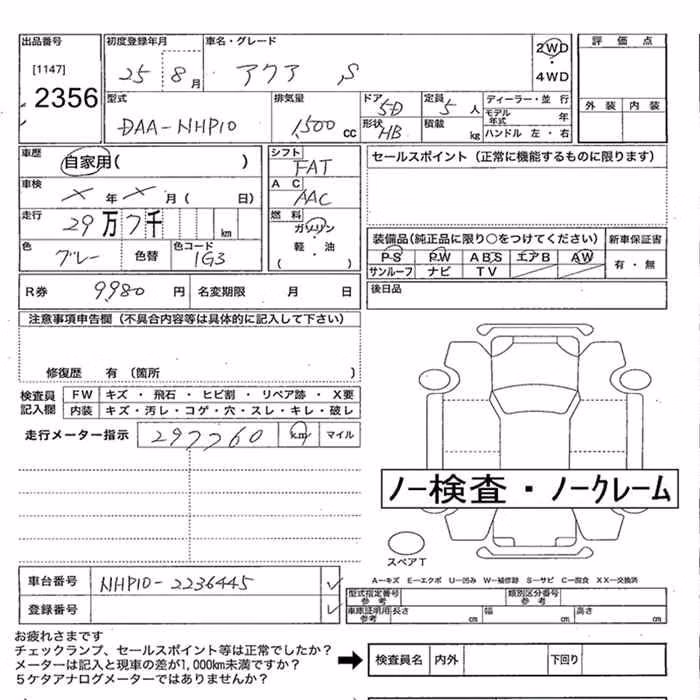 出品番号 初度登録年月 車名・グレード 2WD 評価点
[1147] 25 8月 アクア S 4WD
2356 外装 内装
型式 排気量 ドア 5D 定員 5人 ディーラー・並行
DAA-NHP10 1,500cc 形状 HB 積載 kg モデル年式 年
ハンドル 左・右
車歴 自家用( ) シフト FAT セールスポイント(正常に機能するものに限ります)
車検 × 年 × 月( 日) AC AAC
走行 29万7千 km 燃料 ガソリン 軽・油 ( )
装備品(純正品に限り○をつけてください) 新車保証書
色 グレー 色替 色コード 1G3 PS PW ABS エアB AW 有・無
サンルーフ ナビ TV
R券 9980円 名変期限 月 日 後日品
注意事項申告欄(不具合内容等は具体的に記入して下さい)
修復歴 有(箇所 )
検査員記入欄 FW キズ・飛石・ヒビ割・リペア跡・X要
内装 キズ・汚レ・コゲ・穴・スレ・キレ・破レ
走行メーター指示 297760 km マイル
ノー検査・ノークレーム
スペアT
A−キズ E−エクボ U−凹み W−補修跡 S−サビ C−腐食 XX−交換済
車台番号 NHP10-2236445 型式指定番号参考 類別区分番号参考
登録番号 車庫証明用参考 長さ cm 幅 cm 高さ cm
お疲れさまです
チェックランプ、セールスポイント等は正常でしたか?
メーターは記入と現車の差が1,000km未満ですか? 検査員名 内外 下回り
5ケタアナログメーターではありませんか?